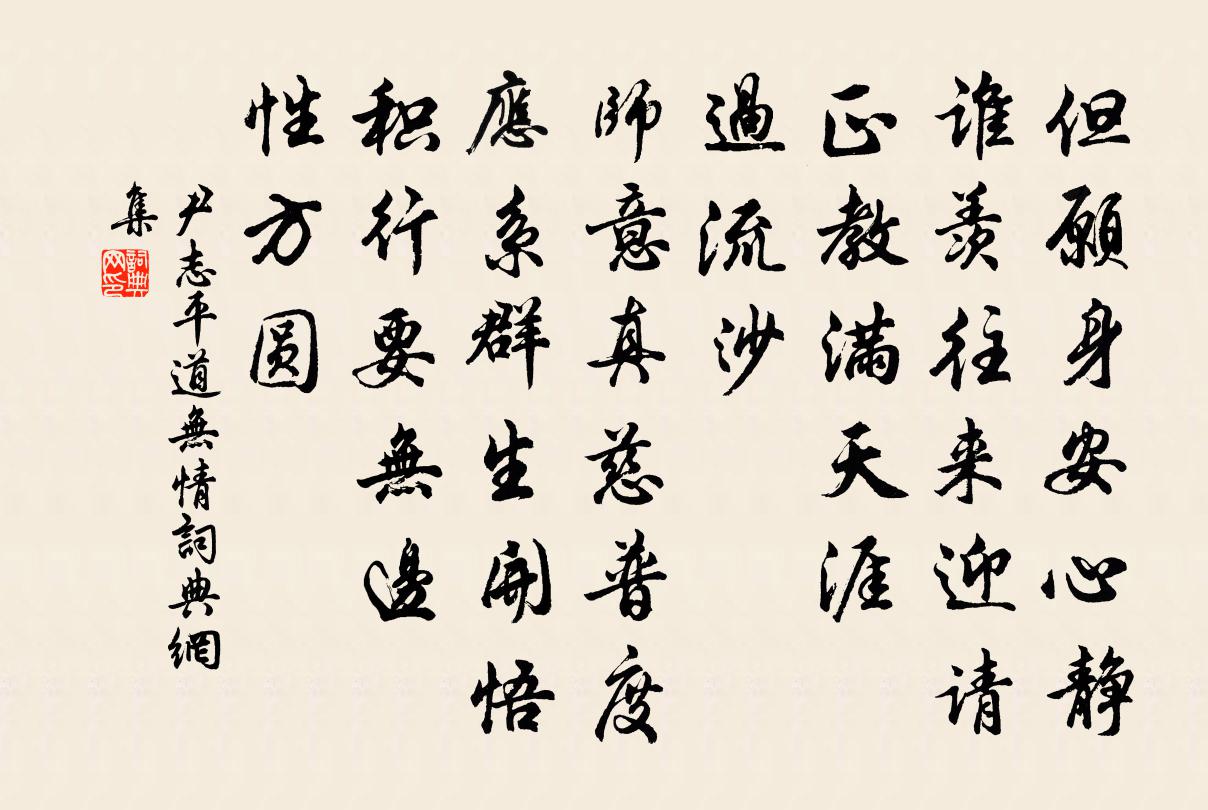 但願身安心静
谁羨往来迎请
正教满天涯
過流沙
師意真慈普度
應系群生開悟
积行要無邊
性方圆
尹志平道無情詞典網
集
詞典
网印